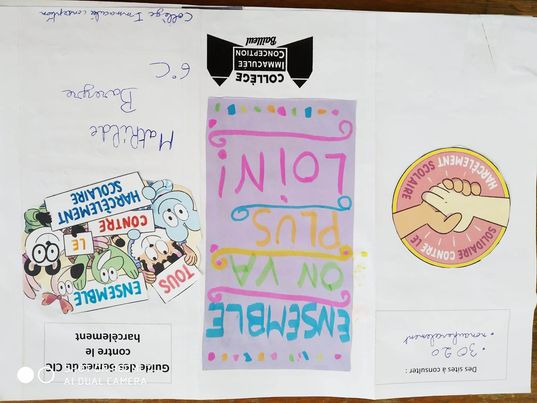 Des sites à consulter :
• 3020
• nonauharcelement
SOLIDAIRE CONTRE LE
HARCÈLEMENT SCOLAIRE
ENSEMBLE
ON VA
PLUS
LOIN !
COLLÈGE
IMMACULÉE
CONCEPTION
Bailleul
Guide des 6èmes du CIC
contre le
harcèlement
TOUS
ENSEMBLE
CONTRE
LE
HARCÈLEMENT
SCOLAIRE
Mathilde
6°C
Collège Immaculée conception
AI DUAL CAMERA